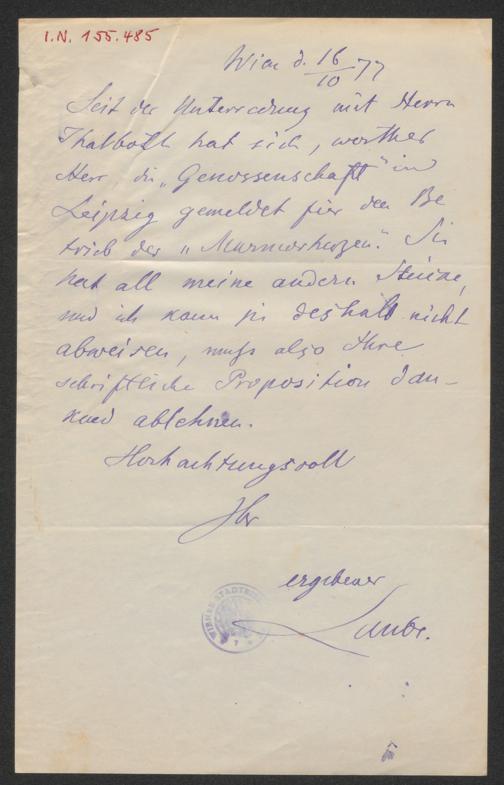 I.N. 155.485
Wien d. 16/10 77
Seit der Unterredung mit Herrn
Thalboth hat sich, werther
Herr, die „Genossenschaft“ in
Leipzig gemeldet für den Be
trieb der „Marmorherzen“. Sie
hat all meine andern Stücke,
und ich kann sie deshalb nicht
abweisen, muß also Ihre
schriftliche Proposition dan–
kend ablehnen.
Hochachtungsvoll
Ihr
ergebener
Laube.